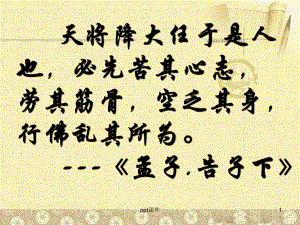 天将降大任于是人
也，必先苦其心志，
劳其筋骨，空乏其身，
行佛乱其所为。
---《孟子.告子下》
ppt课件
1